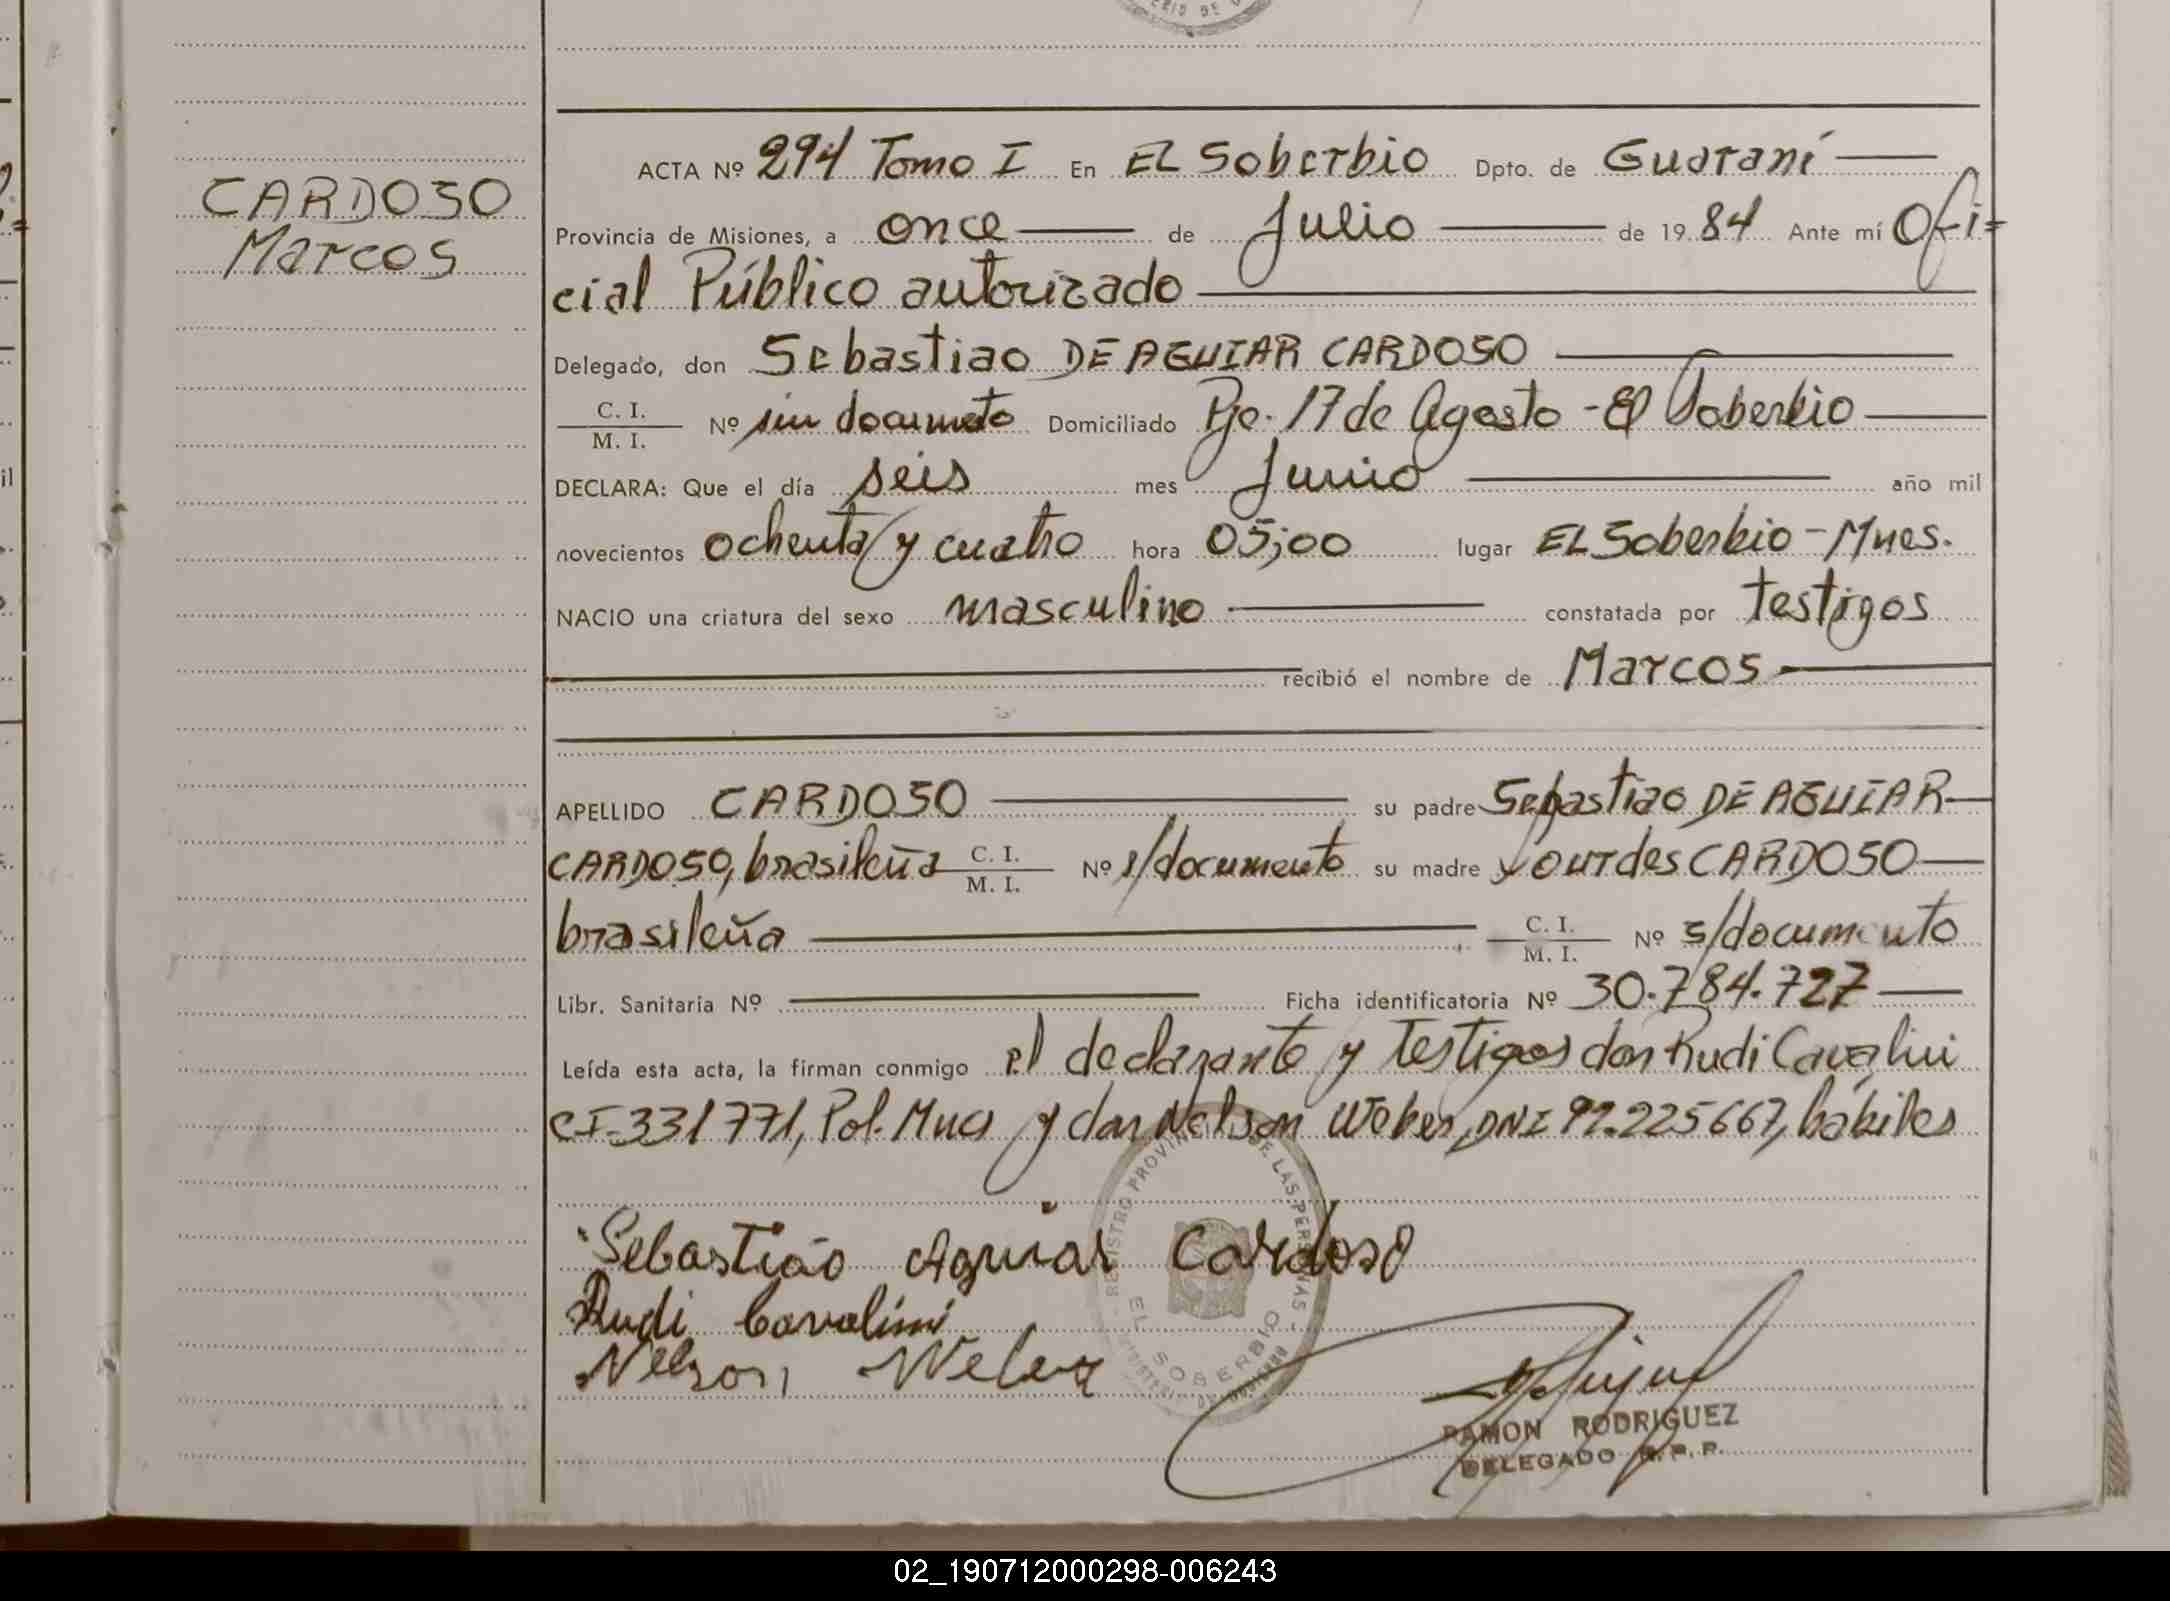 CARDOSO
Marcos
ACTA Nº 294 Tomo I En EL Soberbio Dpto. de Guaraní
Provincia de Misiones, a once de Julio de 1984 Ante mí Ofi=
cial Público autorizado
Delegado, don Sebastiao DE AGUIAR CARDOSO
C. I.
M. I. Nº sin documeto Domiciliado Pje. 17 de Agosto - El Soberbio
DECLARA: Que el día seis mes Junio año mil
novecientos ochenta y cuatro hora 05;00 lugar EL Soberbio - Mnes.
NACIO una criatura del sexo masculino constatada por testigos
recibió el nombre de Marcos
APELLIDO CARDOSO su padre Sebastiao DE AGUIAR
CARDOSO, brasileña C. I. M. I. Nº s/documento su madre Lourdes CARDOSO
brasileña C. I. M. I. Nº s/documento
Libr. Sanitaria Nº Ficha identificatoria Nº 30.784.727
Leída esta acta, la firman conmigo el declarante y testigos don Rudi Cavalini
CI-331771, Pol. Mnes y don Nelson Weber, DNI 92.225667, hábiles
Sebastião Aguiar Cardoso
Rudi Cavalini
Nelson Weber
REGISTRO PROVINCIAL DE LAS PERSONAS
EL SOBERBIO
MINISTERIO DE GOBIERNO
RAMON RODRIGUEZ
DELEGADO R. P. P.
02_190712000298-006243